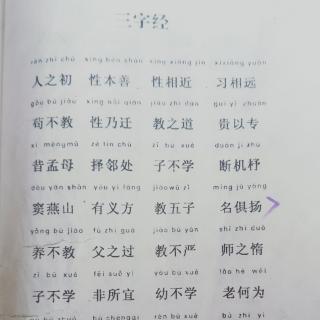 三字经
rén zhī chū xìng běn shàn xìng xiāng jìn xí xiāng yuǎn
人之初 性本善 性相近 习相远
gǒu bú jiào xìng nǎi qiān jiào zhī dào guì yǐ zhuān
苟不教 性乃迁 教之道 贵以专
xī mèng mǔ zé lín chǔ zǐ bù xué duàn jī zhù
昔孟母 择邻处 子不学 断机杼
dòu yān shān yǒu yì fāng jiào wǔ zǐ míng jù yáng
窦燕山 有义方 教五子 名俱扬
yǎng bú jiào fù zhī guò jiào bù yán shī zhī duò
养不教 父之过 教不严 师之惰
zǐ bù xué fēi suǒ yí yòu bù xué lǎo hé wéi
子不学 非所宜 幼不学 老何为